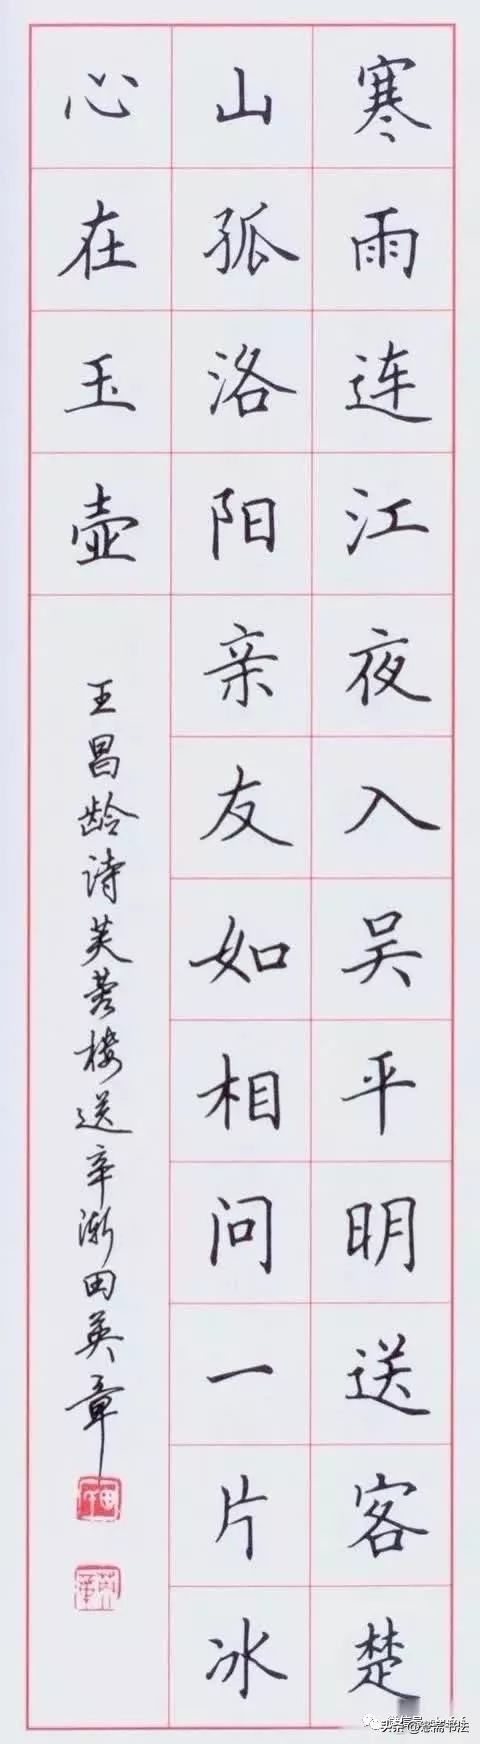 寒雨连江夜入吴平明送客楚
山孤洛阳亲友如相问一片冰
心在玉壶
王昌龄诗芙蓉楼送辛渐田英章
头条@惢斋书法